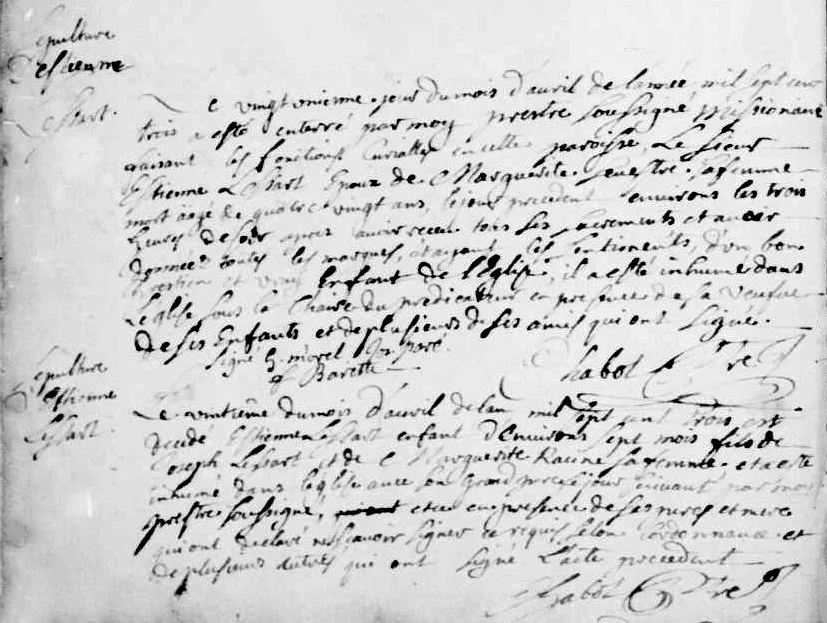 Sepulture
d'estienne
Lessart.
Le vingt unienme jour du mois d'avril de lannée mil sept cent
trois a esté enterré par moy prestre soussigné missionaire
faisant les fonctions Curialles en cette paroisse, Le sieur
Estienne Lessart Epoux de Marguerite Sevestre sa femme
mort aagé de quatre vingt ans, le jour precedent environs les trois
heures de soir apres avoir receu tous ses sacrements et avoir
donnée toutes les marques, et les sentiments, d'un bon
Chrestien et vray Enfant de l'Eglise, il a esté inhumé dans
Leglise sous la Chaire du predicateur en presence de sa veufve
de ses Enfants et de plusieurs de ses amis qui ont signé.
Signé G. morel Jos. paré
f Barette
Chabot Ptre
Sepulture
Estienne
Lessart
Le vintième du mois d'avril de lan mil sept cent trois est
decede Estienne Lessart enfant d'Environs sept mois fils de
Joseph Lessart et de Marguerite Racine sa femme et a esté
inhumé dans leglise avec son Grand pere le jour suivant par moy
prestre soussigné, et ce en presence de ses peres et mere
qui ont declaré ne sçavoir signer ce requis selon l'ordonnance et
de plusieurs autres qui ont signé l'acte precedent
Chabot Ptre